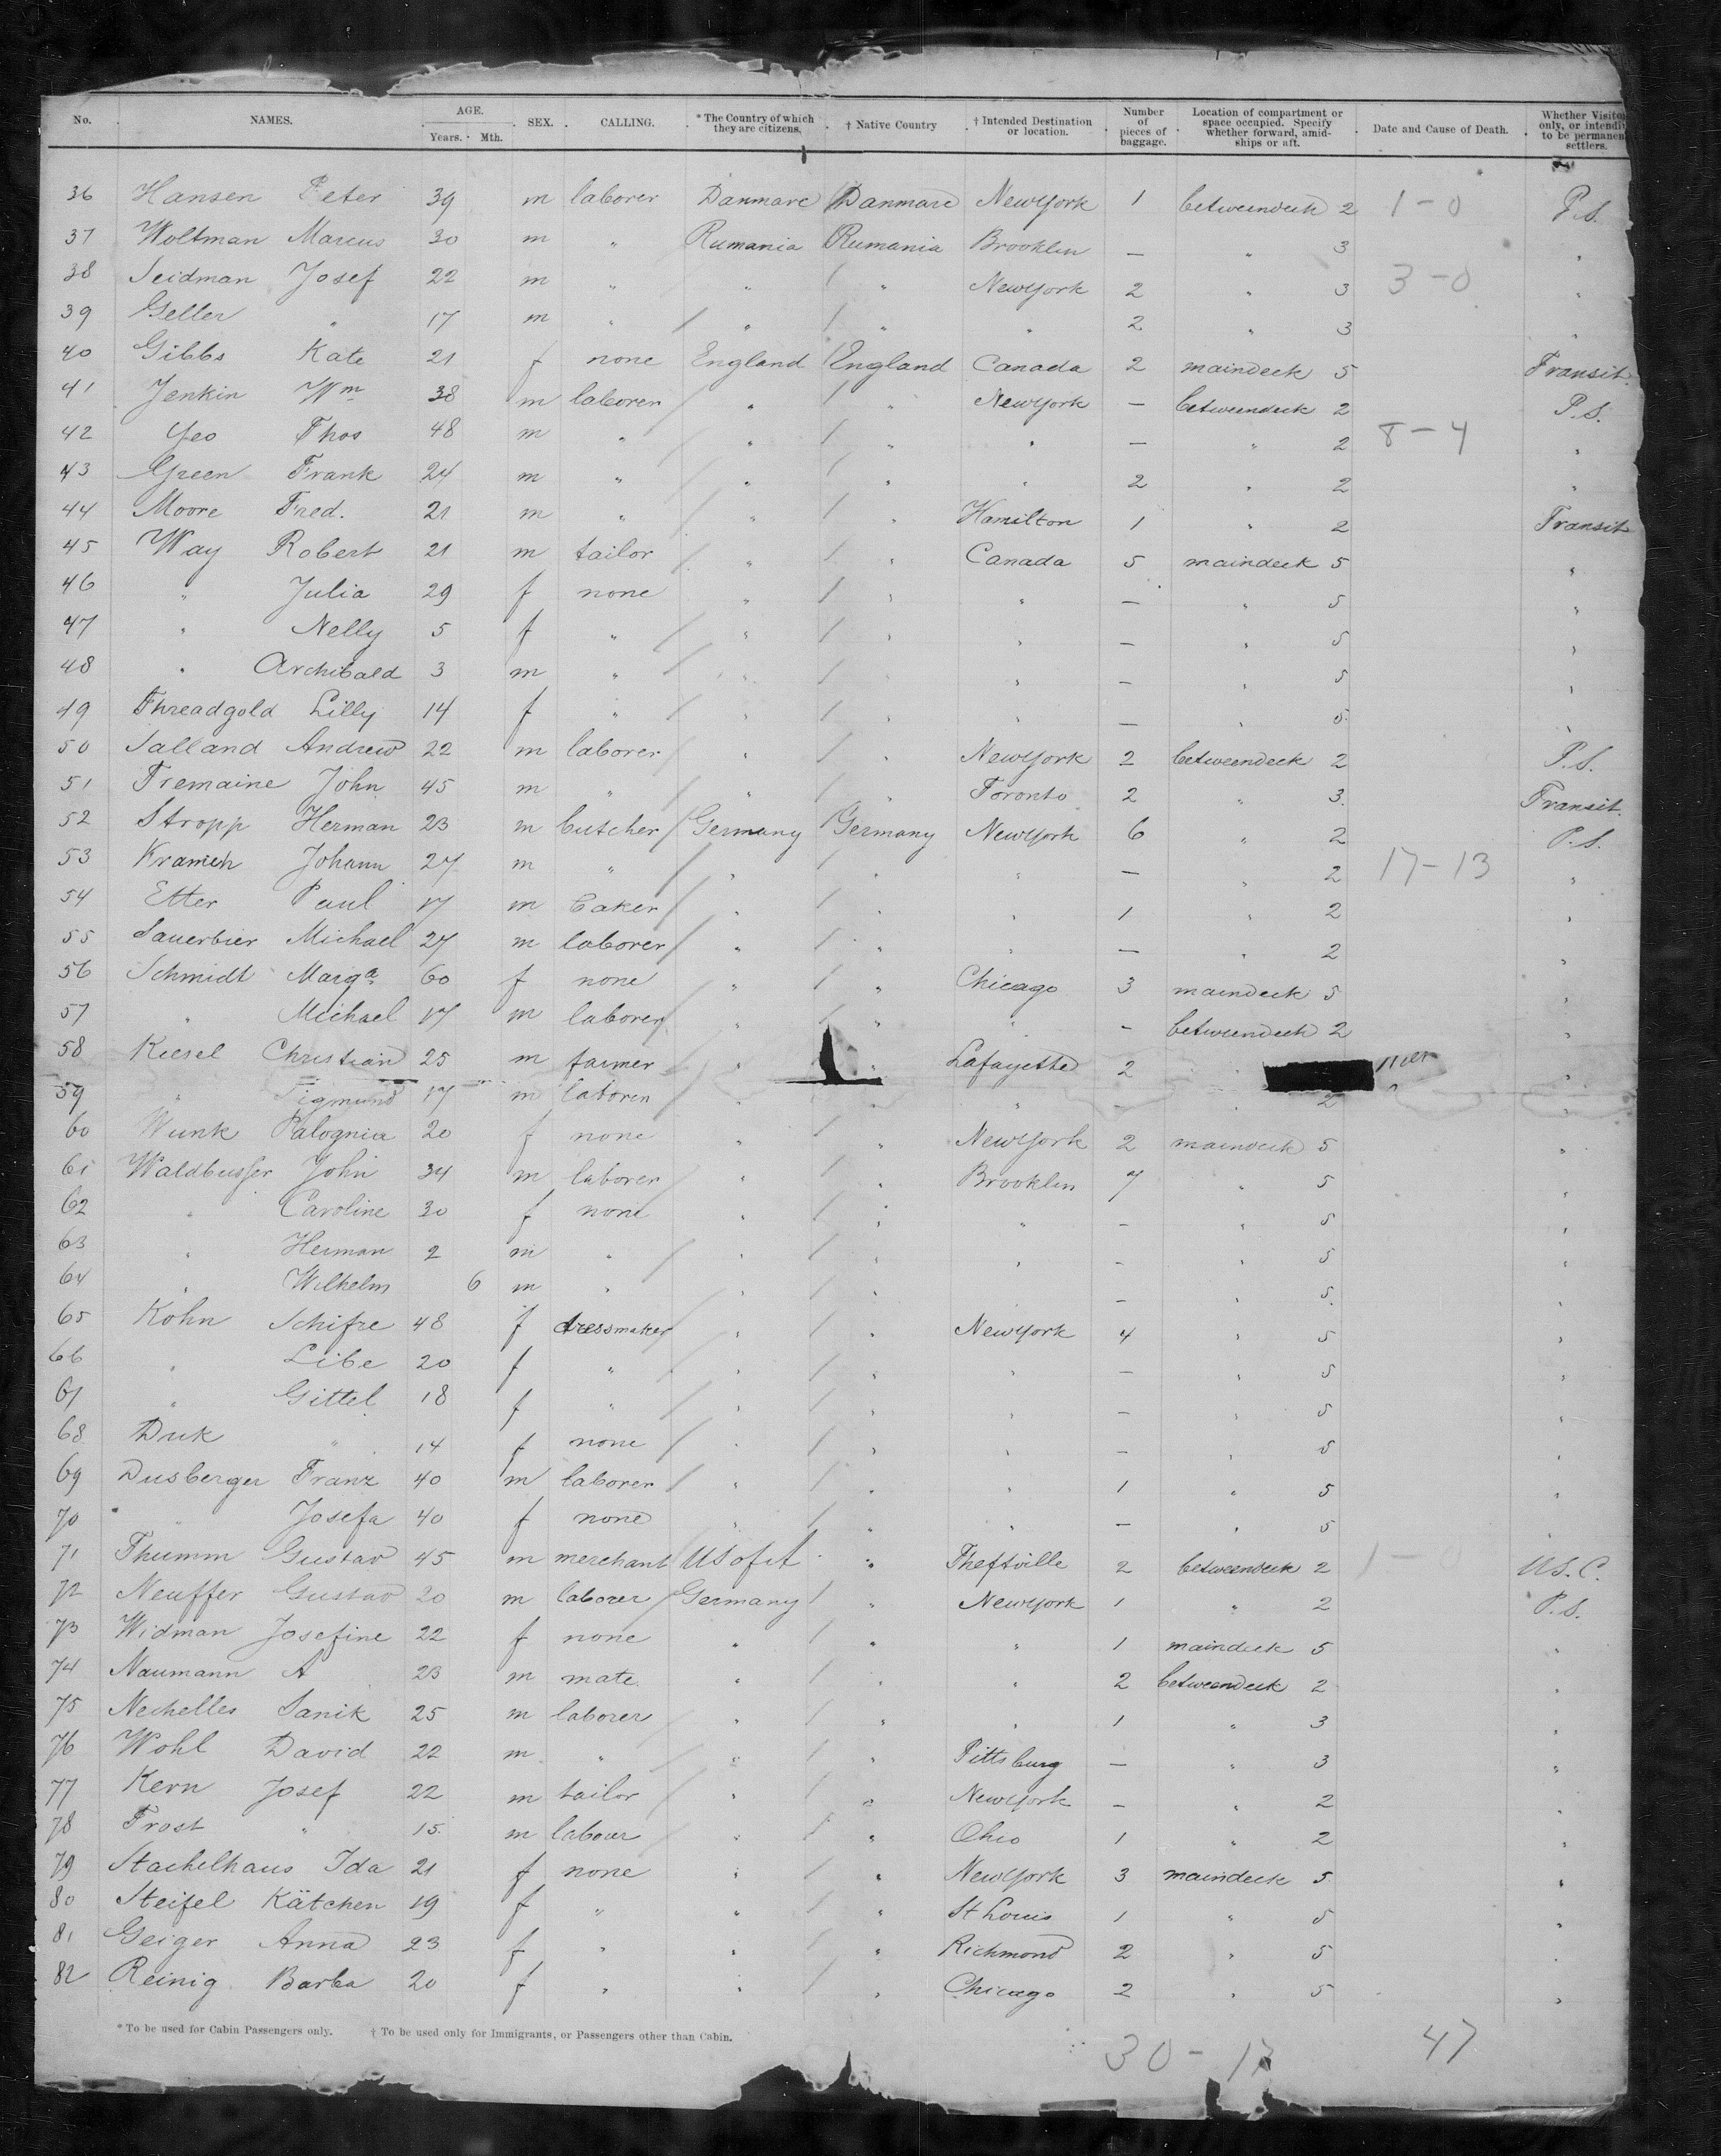 No. NAMES. AGE. Years. Mth. SEX. CALLING. * The Country of which they are citizens. † Native Country † Intended Destination or location. Number of pieces of baggage. Location of compartment or space occupied. Specify whether forward, amidships or aft. Date and Cause of Death. Whether Visitor only, or intendi to be permanen settlers.
36 Hansen Peter 39 m laborer Danmarc Danmarc NewYork 1 betweendeck 2 1-0 P.S.
37 Woltman Marcus 30 m " Rumania Rumania Brooklin — " 3 "
38 Seidman Josef 22 m " " " NewYork 2 " 3 3-0 "
39 Geller " 17 m " " " " 2 " 3 "
40 Gibbs Kate 21 f none England England Canada 2 maindeck 5 Transit.
41 Jenkin Wm 38 m laborer " " NewYork — betweendeck 2 P.S.
42 Yeo Thos 48 m " " " " — " 2 8-4 "
43 Green Frank 24 m " " " " 2 " 2 "
44 Moore Fred. 21 m " " " Hamilton 1 " 2 Transit
45 Way Robert 21 m tailor " " Canada 5 maindeck 5 "
46 " Julia 29 f none " " " — " 5 "
47 " Nelly 5 f " " " " — " 5 "
48 " Archibald 3 m " " " " — " 5 "
49 Threadgold Lilly 14 f " " " " — " 5 "
50 Salland Andrew 22 m laborer " " NewYork 2 betweendeck 2 P.S.
51 Tremaine John 45 m " " " Toronto 2 " 3 Transit.
52 Stropp Herman 23 m butcher Germany Germany NewYork 6 " 2 P.S.
53 Johann 27 m " " " " — " 2 17-13 "
54 Etter Paul 17 m baker " " " 1 " 2 "
55 Sauerbier Michael 27 m laborer " " " — " 2 "
56 Schmidt Marga 60 f none " " Chicago 3 maindeck 5 "
57 " Michael 17 m laborer " " " — betweendeck 2 "
58 Kiesel Christian 25 m farmer " " Lafayette 2 " "
59 " Sigmund 17 m laborer " " " — " 2 "
60 Wunk Palognia 20 f none " " NewYork 2 maindeck 5 "
61 Waldbusser John 34 m laborer " " Brooklin 7 " 5 "
62 " Caroline 30 f none " " " — " 5 "
63 " Herman 2 m " " " " — " 5 "
64 " Wilhelm 6 m " " " — " 5 "
65 Kohn Schifre 48 f dressmaker " " NewYork 4 " 5 "
66 " Libe 20 f " " " " — " 5 "
67 " Gittel 18 f " " " " — " 5 "
68 Duk " 14 f none " " " — " 5 "
69 Dusberger Franz 40 m laborer " " " 1 " 5 "
70 " Josefa 40 f none " " " — " 5 "
71 Thumm Gustav 45 m merchant US of A " Theftville 2 betweendeck 2 1-0 US.C.
72 Neuffer Gustav 20 m laborer Germany " NewYork 1 " 2 P.S.
73 Widman Josefine 22 f none " " " 1 maindeck 5 "
74 Naumann A 23 m mate " " " 2 betweendeck 2 "
75 Nechelles Sanik 25 m laborer " " " 1 " 3 "
76 Wohl David 22 m " " " Pittsburg — " 3 "
77 Kern Josef 22 m tailor " " NewYork — " 2 "
78 Frost " 15 m labour " " Ohio 1 " 2 "
79 Stachelhaus Ida 21 f none " " NewYork 3 maindeck 5 "
80 Steifel Kätchen 19 f " " " St Louis 1 " 5 "
81 Geiger Anna 23 f " " " Richmond 2 " 5 "
82 Reinig Barba 20 f " " " Chicago 2 " 5 "
* To be used for Cabin Passengers only. † To be used only for Immigrants, or Passengers other than Cabin.
30-17 47